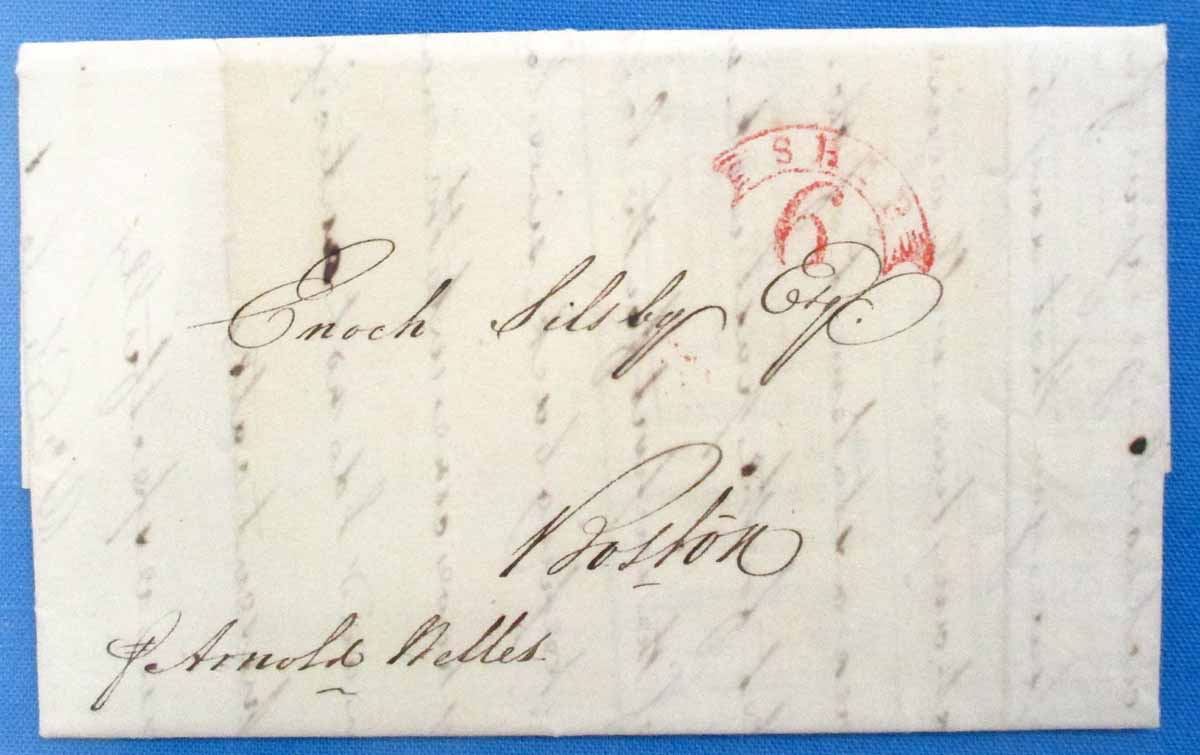 SHIP
6
Enoch Silsby Esqr.
Boston
Pr Arnold Welles